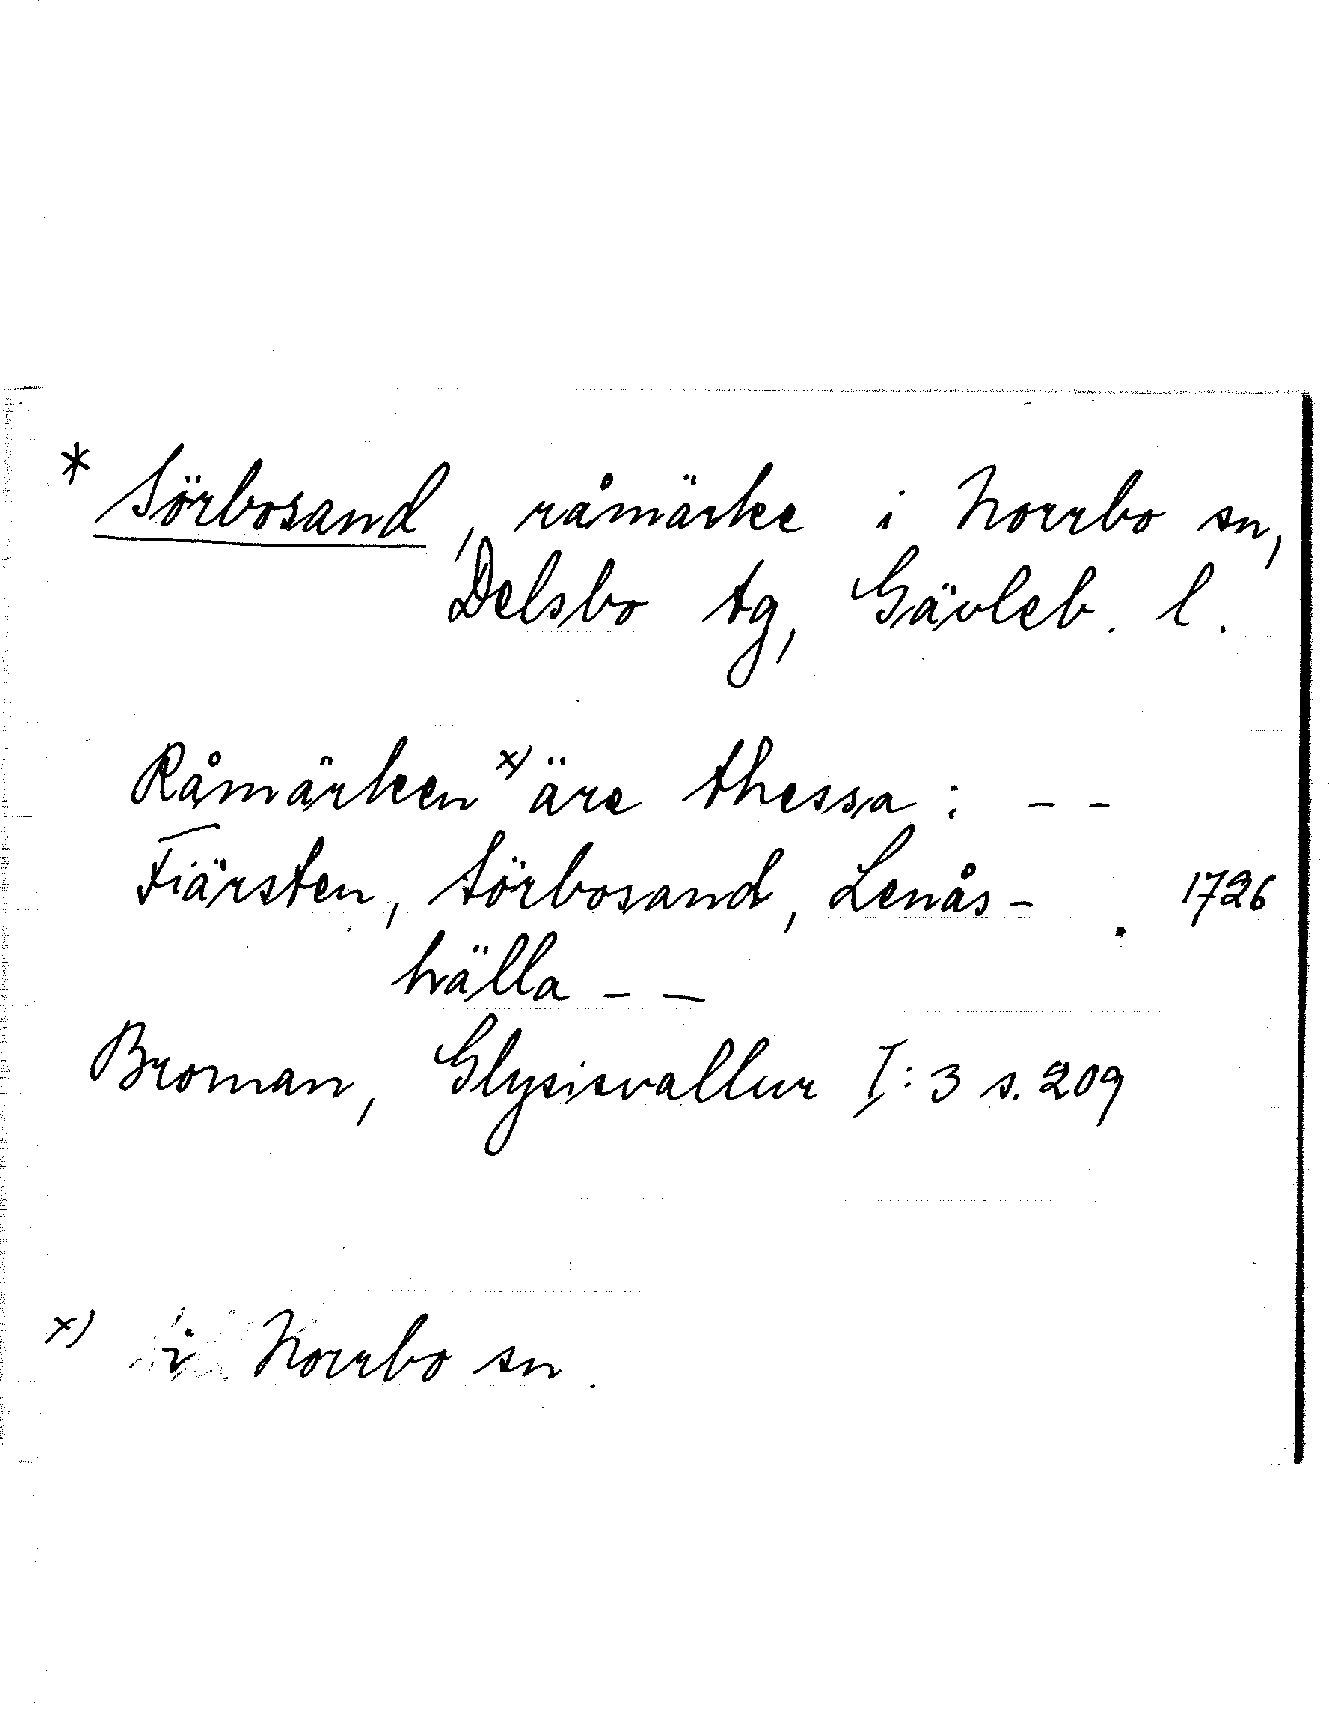 * Sörbosand, råmärke i Norrbo sn,
Delsbo tg, Gävleb. l.
Råmärken x) äre thessa : - -
Fiärsten, Sörbosand, Lenås- . 1726
hälla - -
Broman, Glysisvallur I:3 s. 209
x) i Norrbo sn.